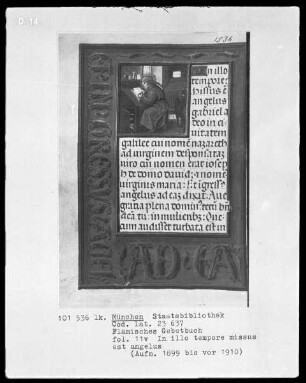 D 14
1536
In illo
tempore:
missus ē
angelus
gabriel a
deo in ci-
uitatem
galilee cui nomen nazareth
ad virginem desponsatā
viro cui nomen erat ioseph
de domo dauid: a nomē
virginis maria: Et īgress'
angelus ad eaz dixit: Aue
gratia plena dominus tecū: bn̄
dicta tu in mulieribz: Que
cum audisset turbata est in
ET INGRESSUS ANGELUS AD EAM
101 536 lk. München Staatsbibliothek
Cod. lat. 23 637
Flämisches Gebetbuch
fol. 11v In illo tempore missus
est angelus
(Aufn. 1899 bis vor 1910)